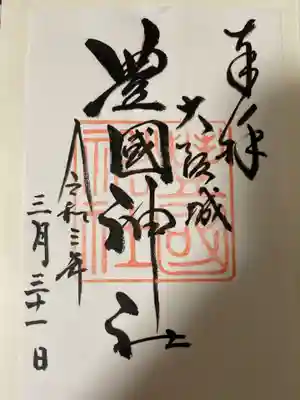 奉拝
大阪城
豊國神社
令和三年
三月三十一日